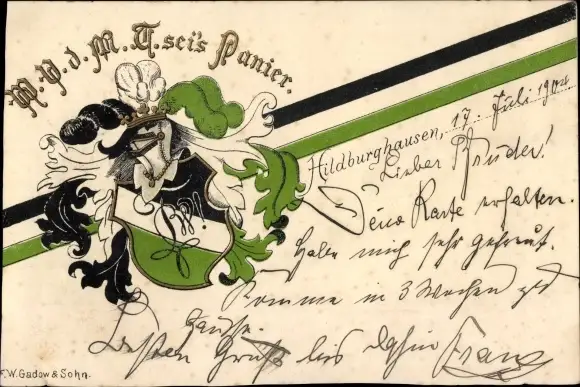 W.V.d.M.T. sei's Panier.
Hildburghausen, 17. Juli 1902
Lieber Bruder!
Deine Karte erhalten.
Habe mich sehr gefreut.
Komme in 3 Wochen
Hause.
Besten Gruß bis dahin Franz
F.W.Gadow & Sohn.